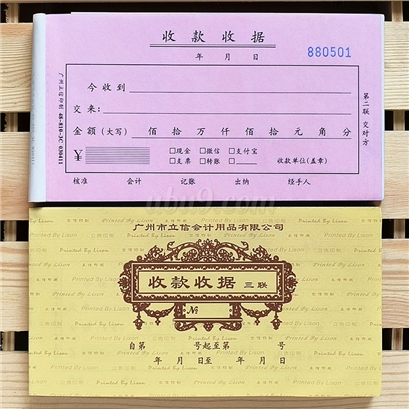 收款收据
年 月 日 880501
今收到
交来:
金额(大写) 佰 拾 万 仟 佰 拾 元 角 分
¥ □现金 □微信 □支付宝
□支票 □转账 □ 收款单位(盖章)
核准 会计 记账 出纳 经手人
第二联 交对方
广州立信印刷 48-810-3C 030411
ubu9.com
广州市立信会计用品有限公司
收款收据 三联
№
自第 号起至第 号
年 月 日至 年 月 日
Printed By Lixin